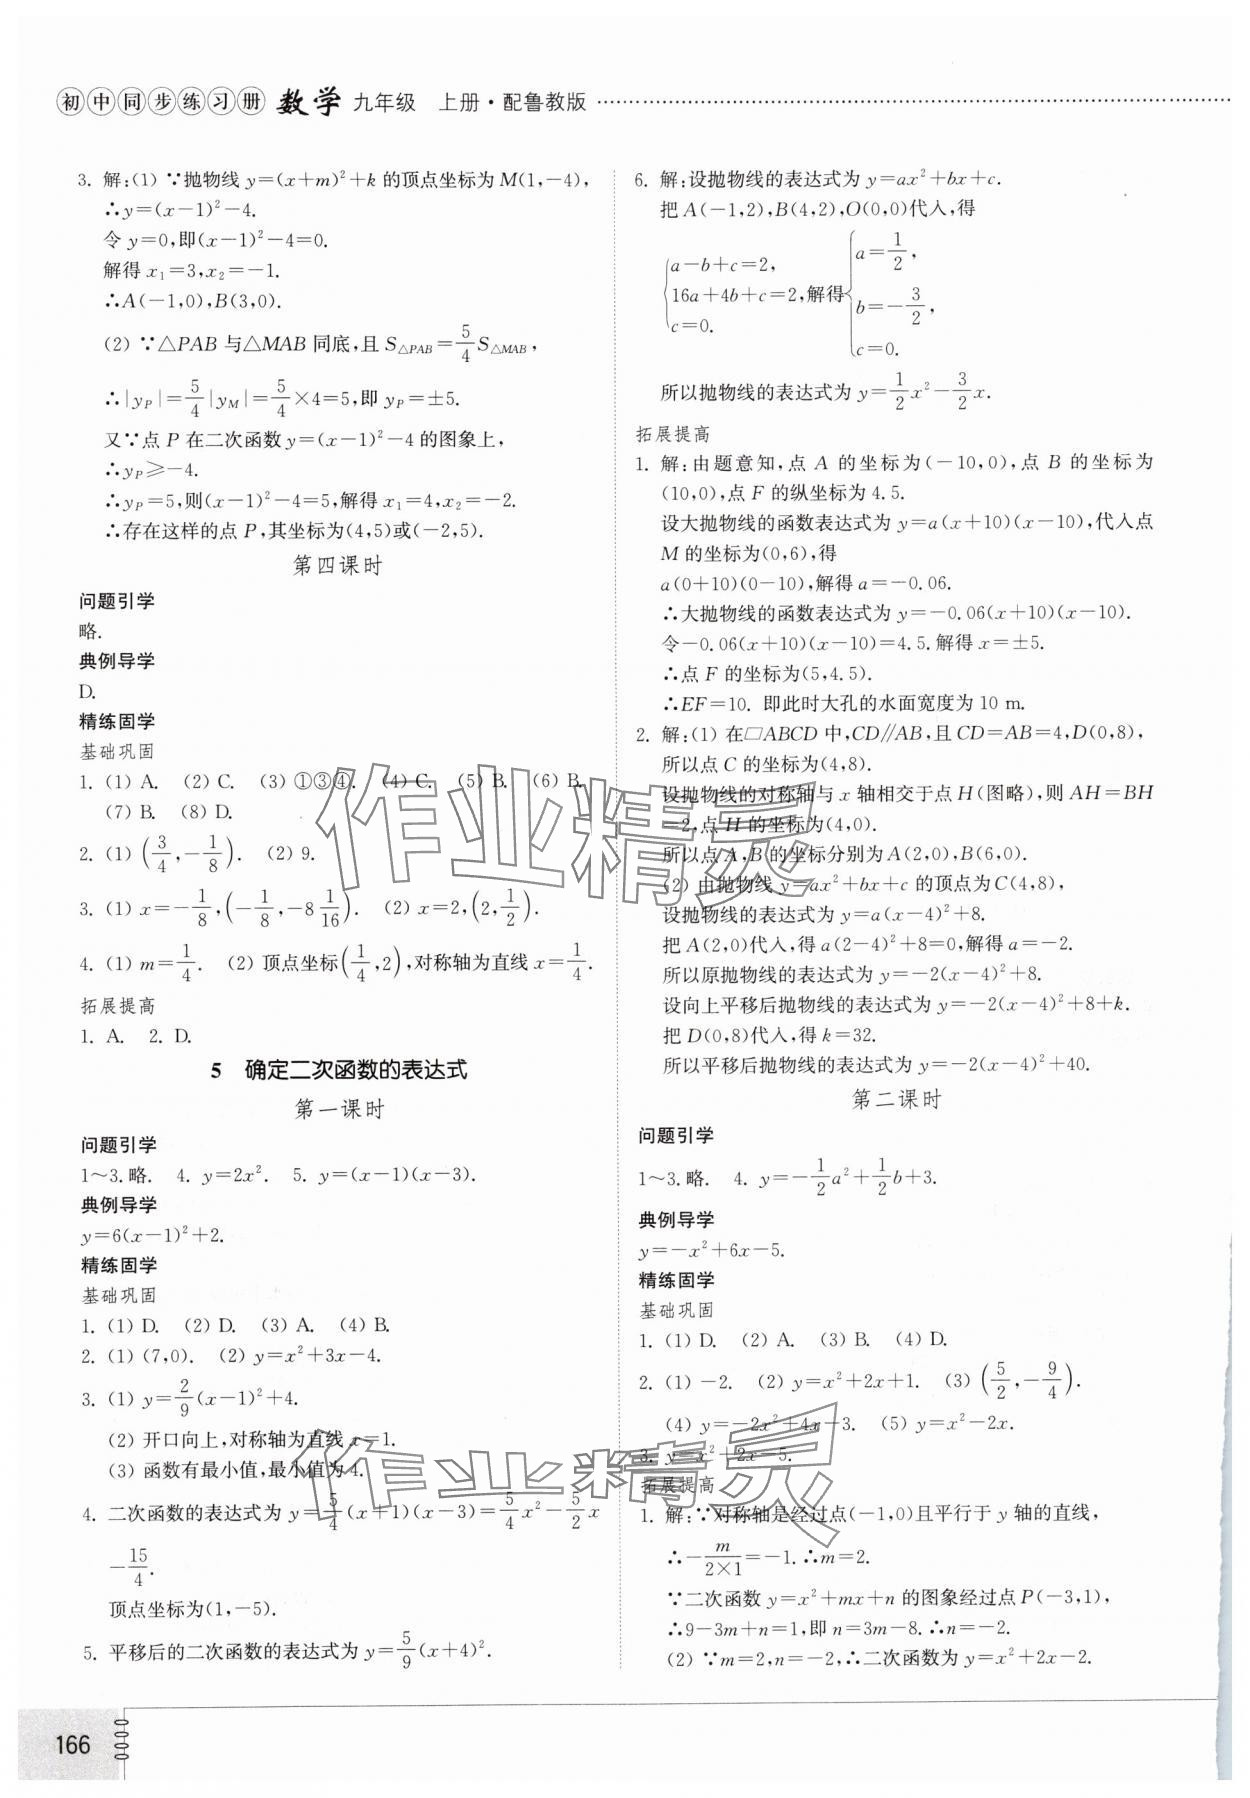 初中同步练习册 数学 九年级 上册·配鲁教版
3. 解:(1) ∵抛物线 y=(x+m)²+k 的顶点坐标为 M(1,-4),
∴y=(x-1)²-4.
令 y=0,即(x-1)²-4=0.
解得 x₁=3,x₂=-1.
∴A(-1,0),B(3,0).
(2) ∵△PAB 与△MAB 同底,且 S△PAB=5/4 S△MAB,
∴|yP|=5/4|yM|=5/4×4=5,即 yP=±5.
又∵点 P 在二次函数 y=(x-1)²-4 的图象上,
∴yP≥-4.
∴yP=5,则(x-1)²-4=5,解得 x₁=4,x₂=-2.
∴存在这样的点 P,其坐标为(4,5)或(-2,5).
第四课时
问题引学
略.
典例导学
D.
精练固学
基础巩固
1. (1) A. (2) C. (3) ①③④. (4) C. (5) B. (6) B.
(7) B. (8) D.
2. (1) (3/4,-1/8). (2) 9.
3. (1) x=-1/8,(-1/8,-8 1/16). (2) x=2,(2,1/2).
4. (1) m=1/4. (2) 顶点坐标(1/4,2),对称轴为直线 x=1/4.
拓展提高
1. A. 2. D.
5 确定二次函数的表达式
第一课时
问题引学
1~3. 略. 4. y=2x². 5. y=(x-1)(x-3).
典例导学
y=6(x-1)²+2.
精练固学
基础巩固
1. (1) D. (2) D. (3) A. (4) B.
2. (1) (7,0). (2) y=x²+3x-4.
3. (1) y=2/9(x-1)²+4.
(2) 开口向上,对称轴为直线 x=1.
(3) 函数有最小值,最小值为 4.
4. 二次函数的表达式为 y=5/4(x+1)(x-3)=5/4x²-5/2x
-15/4.
顶点坐标为(1,-5).
5. 平移后的二次函数的表达式为 y=5/9(x+4)².
6. 解:设抛物线的表达式为 y=ax²+bx+c.
把 A(-1,2),B(4,2),O(0,0)代入,得
{a-b+c=2, 16a+4b+c=2, c=0. 解得{a=1/2, b=-3/2, c=0.
所以抛物线的表达式为 y=1/2x²-3/2x.
拓展提高
1. 解:由题意知,点 A 的坐标为(-10,0),点 B 的坐标为
(10,0),点 F 的纵坐标为 4.5.
设大抛物线的函数表达式为 y=a(x+10)(x-10),代入点
M 的坐标为(0,6),得
a(0+10)(0-10),解得 a=-0.06.
∴大抛物线的函数表达式为 y=-0.06(x+10)(x-10).
令-0.06(x+10)(x-10)=4.5.解得 x=±5.
∴点 F 的坐标为(5,4.5).
∴EF=10. 即此时大孔的水面宽度为 10 m.
2. 解:(1) 在▱ABCD 中,CD∥AB,且 CD=AB=4,D(0,8),
所以点 C 的坐标为(4,8).
设抛物线的对称轴与 x 轴相交于点 H(图略),则 AH=BH
=2,点 H 的坐标为(4,0).
所以点 A,B 的坐标分别为 A(2,0),B(6,0).
(2) 由抛物线 y=ax²+bx+c 的顶点为C(4,8),
设抛物线的表达式为 y=a(x-4)²+8.
把 A(2,0)代入,得 a(2-4)²+8=0,解得 a=-2.
所以原抛物线的表达式为 y=-2(x-4)²+8.
设向上平移后抛物线的表达式为 y=-2(x-4)²+8+k.
把 D(0,8)代入,得 k=32.
所以平移后抛物线的表达式为 y=-2(x-4)²+40.
第二课时
问题引学
1~3. 略. 4. y=-1/2a²+1/2b+3.
典例导学
y=-x²+6x-5.
精练固学
基础巩固
1. (1) D. (2) A. (3) B. (4) D.
2. (1) -2. (2) y=x²+2x+1. (3) (5/2,-9/4).
(4) y=-2x²+4x-3. (5) y=x²-2x.
3. y=x²+2x-5.
拓展提高
1. 解:∵对称轴是经过点(-1,0)且平行于 y 轴的直线,
∴-m/(2×1)=-1. ∴m=2.
∵二次函数 y=x²+mx+n 的图象经过点 P(-3,1),
∴9-3m+n=1,即 n=3m-8. ∴n=-2.
(2) ∵m=2,n=-2,∴二次函数为 y=x²+2x-2.
166
作业精灵
作业精灵